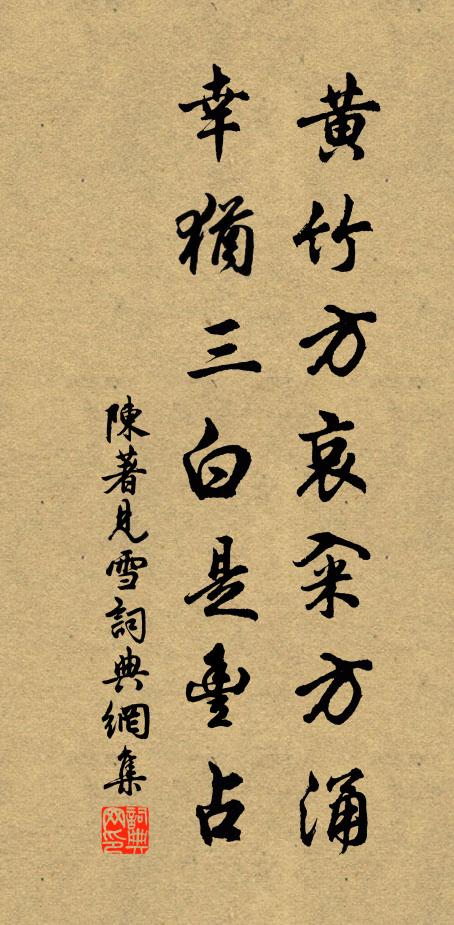 黄竹方哀籴方涌
幸猶三白是豐占
陳著見雪詞典網集
詞典网印